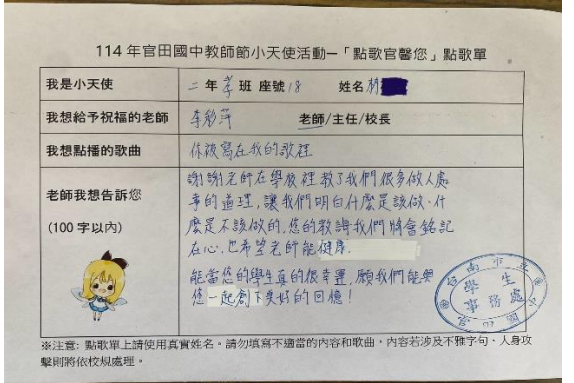 114 年官田國中教師節小天使活動—「點歌官馨您」點歌單
我是小天使 二年孝班 座號18 姓名 林
我想給予祝福的老師 李彩萍 老師/主任/校長
我想點播的歌曲 你被寫在我的歌裡
老師我想告訴您
(100 字以內)
謝謝老師在學校裡教了我們很多做人處
事的道理,讓我們明白什麼是該做、什
麼是不該做的,您的教誨我們將會銘記
在心,也希望老師能健康.
能當您的學生真的很幸運,願我們能與
您一起創下美好的回憶!
台南市立
學生
事務處
官田國中
※注意: 點歌單上請使用真實姓名。請勿填寫不適當的內容和歌曲,內容若涉及不雅字句、人身攻
擊則將依校規處理。